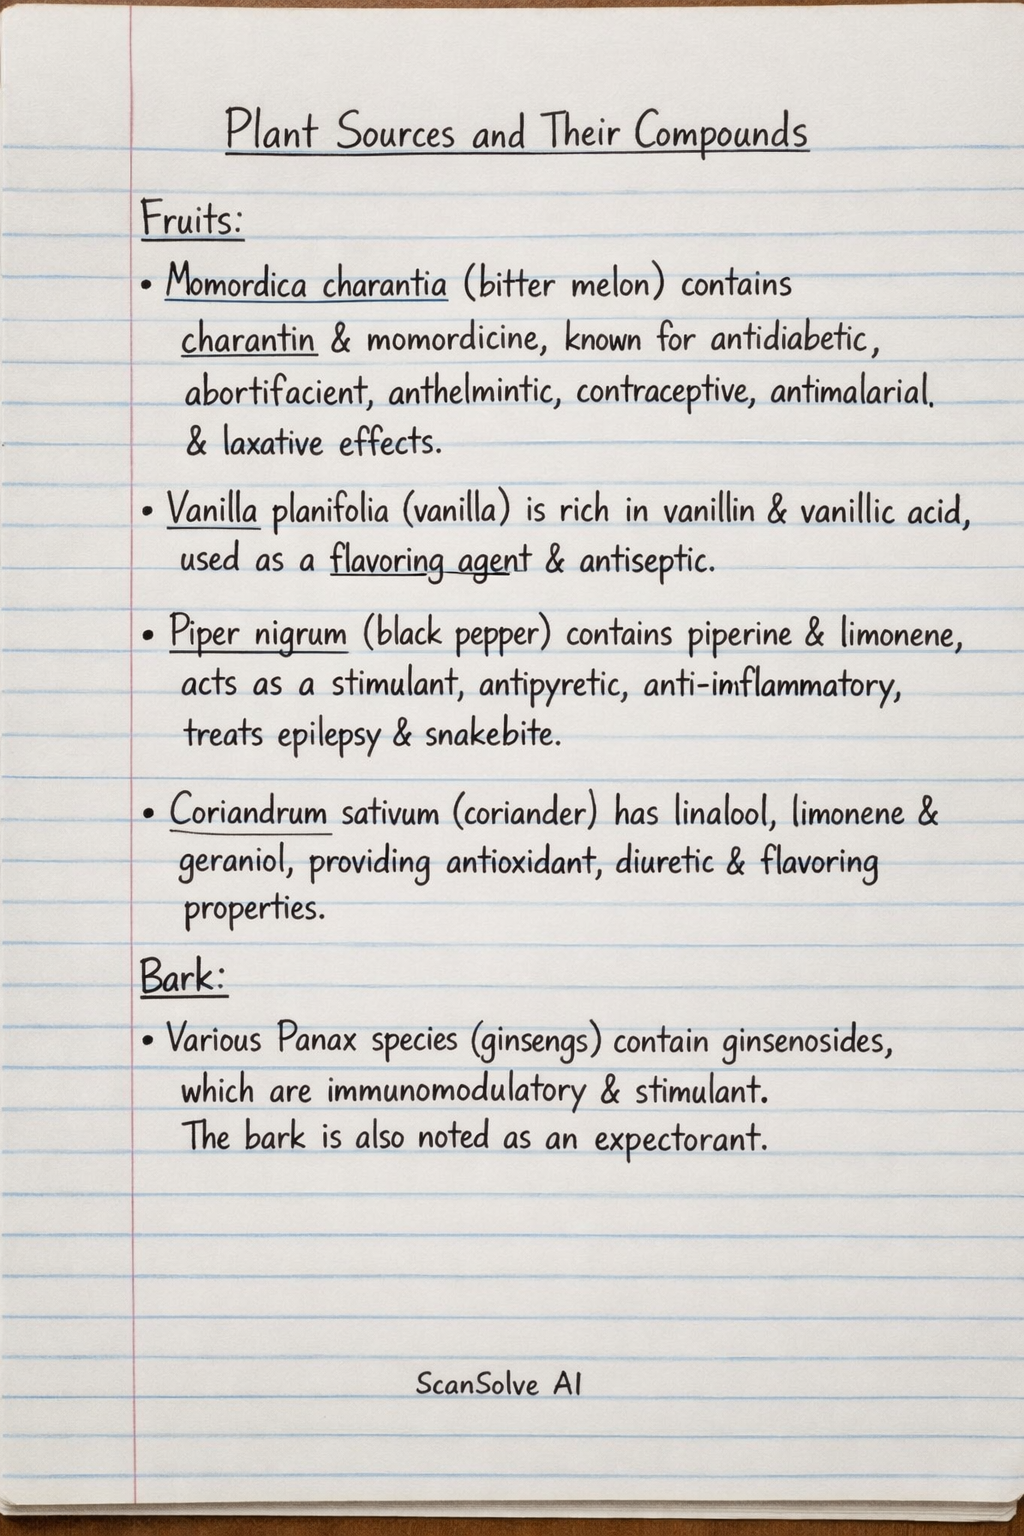 Plant Sources and Their Compounds
Fruits:
• Momordica charantia (bitter melon) contains
charantin & momordicine, known for antidiabetic,
abortifacient, anthelmintic, contraceptive, antimalarial.
& laxative effects.
• Vanilla planifolia (vanilla) is rich in vanillin & vanillic acid,
used as a flavoring agent & antiseptic.
• Piper nigrum (black pepper) contains piperine & limonene,
acts as a stimulant, antipyretic, anti-inflammatory,
treats epilepsy & snakebite.
• Coriandrum sativum (coriander) has linalool, limonene &
geraniol, providing antioxidant, diuretic & flavoring
properties.
Bark:
• Various Panax species (ginsengs) contain ginsenosides,
which are immunomodulatory & stimulant.
The bark is also noted as an expectorant.
ScanSolve AI